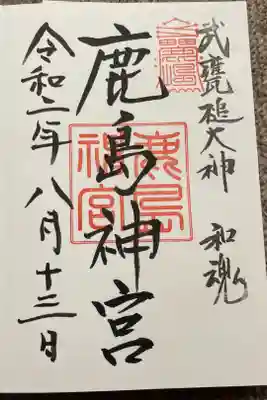 武甕槌大神 和魂
鹿島神宮
鹿島
神宮
令和二年八月十三日